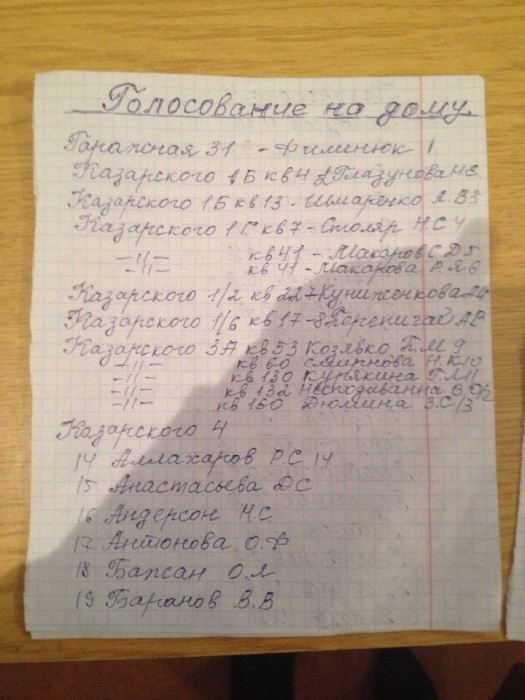 Голосование на дому
Гаражная 31 - Филинюк 1
Казарского 1Б кв 4 2 Глазунова Н.С
Казарского 1Б кв 13 - Шмаренко Л.В 3
Казарского 1Г кв 7 - Столяр Н.С 4
—//— кв 41 - Макаров С.Д 5
—//— кв 41 - Макарова Р.Я 6
Казарского 1/2 кв 227 Куниженкова
Казарского 1/6 кв 17 - 8 Перепичай АВ
Казарского 3А кв 53 Козявко П.М 9
—//— кв 60 Смирнова Н.К 10
—//— кв 130 Кунякина Г.Л 11
—//— кв 132 В.О 12
—//— кв 160 Дюмина З.С 13
Казарского 4
14 Аллахаров Р С 14
15 Анастасьева Д С
16 Андерсон Н.С
17 Антонова О.Ф
18 Бажан О.Л
19 Баранов В.В